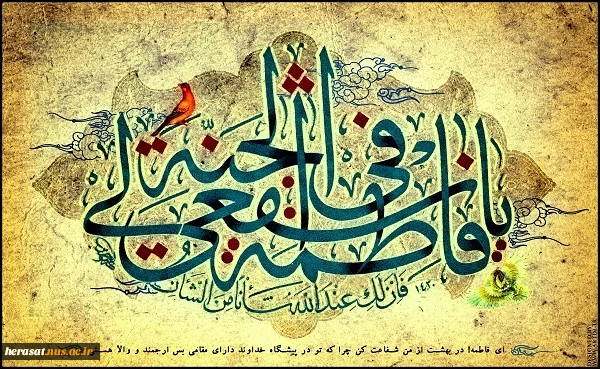 یا فاطمة اشفعی لی فی الجنة
فان لک عند الله شأنا من الشان
۱۴۲۰
ای فاطمه! در بهشت از من شفاعت کن چرا که تو در پیشگاه خداوند دارای مقامی بس ارجمند و والا هستی
herasat.nus.ac.ir